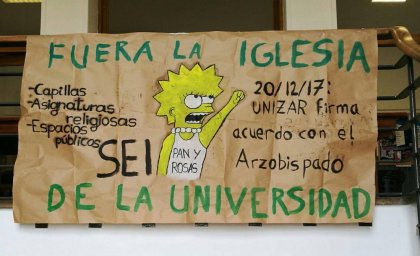 FUERA LA IGLESIA
-Capillas
-Asignaturas
religiosas
-Espacios
públicos
SEI
PAN Y
ROSAS
20/12/17:
UNIZAR firma
acuerdo con el
Arzobispado
DE LA UNIVERSIDAD